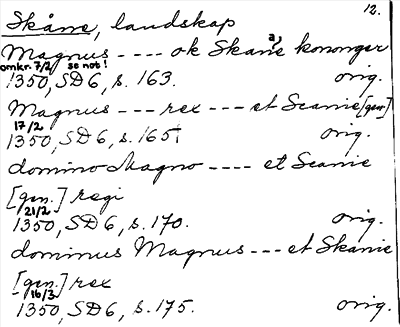 12.
Skåne, landskap
Magnus ---- ok Skane a, kononger
omkr. 7/2 se not!
1350, SD 6, s. 163. orig.
Magnus --- rex --- et Scanie [gen.]
17/2
1350, SD 6, s. 165. orig.
domino Magno ---- et Scanie
[gen.] regi
21/2
1350, SD 6, s. 170. orig.
dominus Magnus --- et Skanie
[gen.] rex
16/3
1350, SD 6, s. 175. orig.